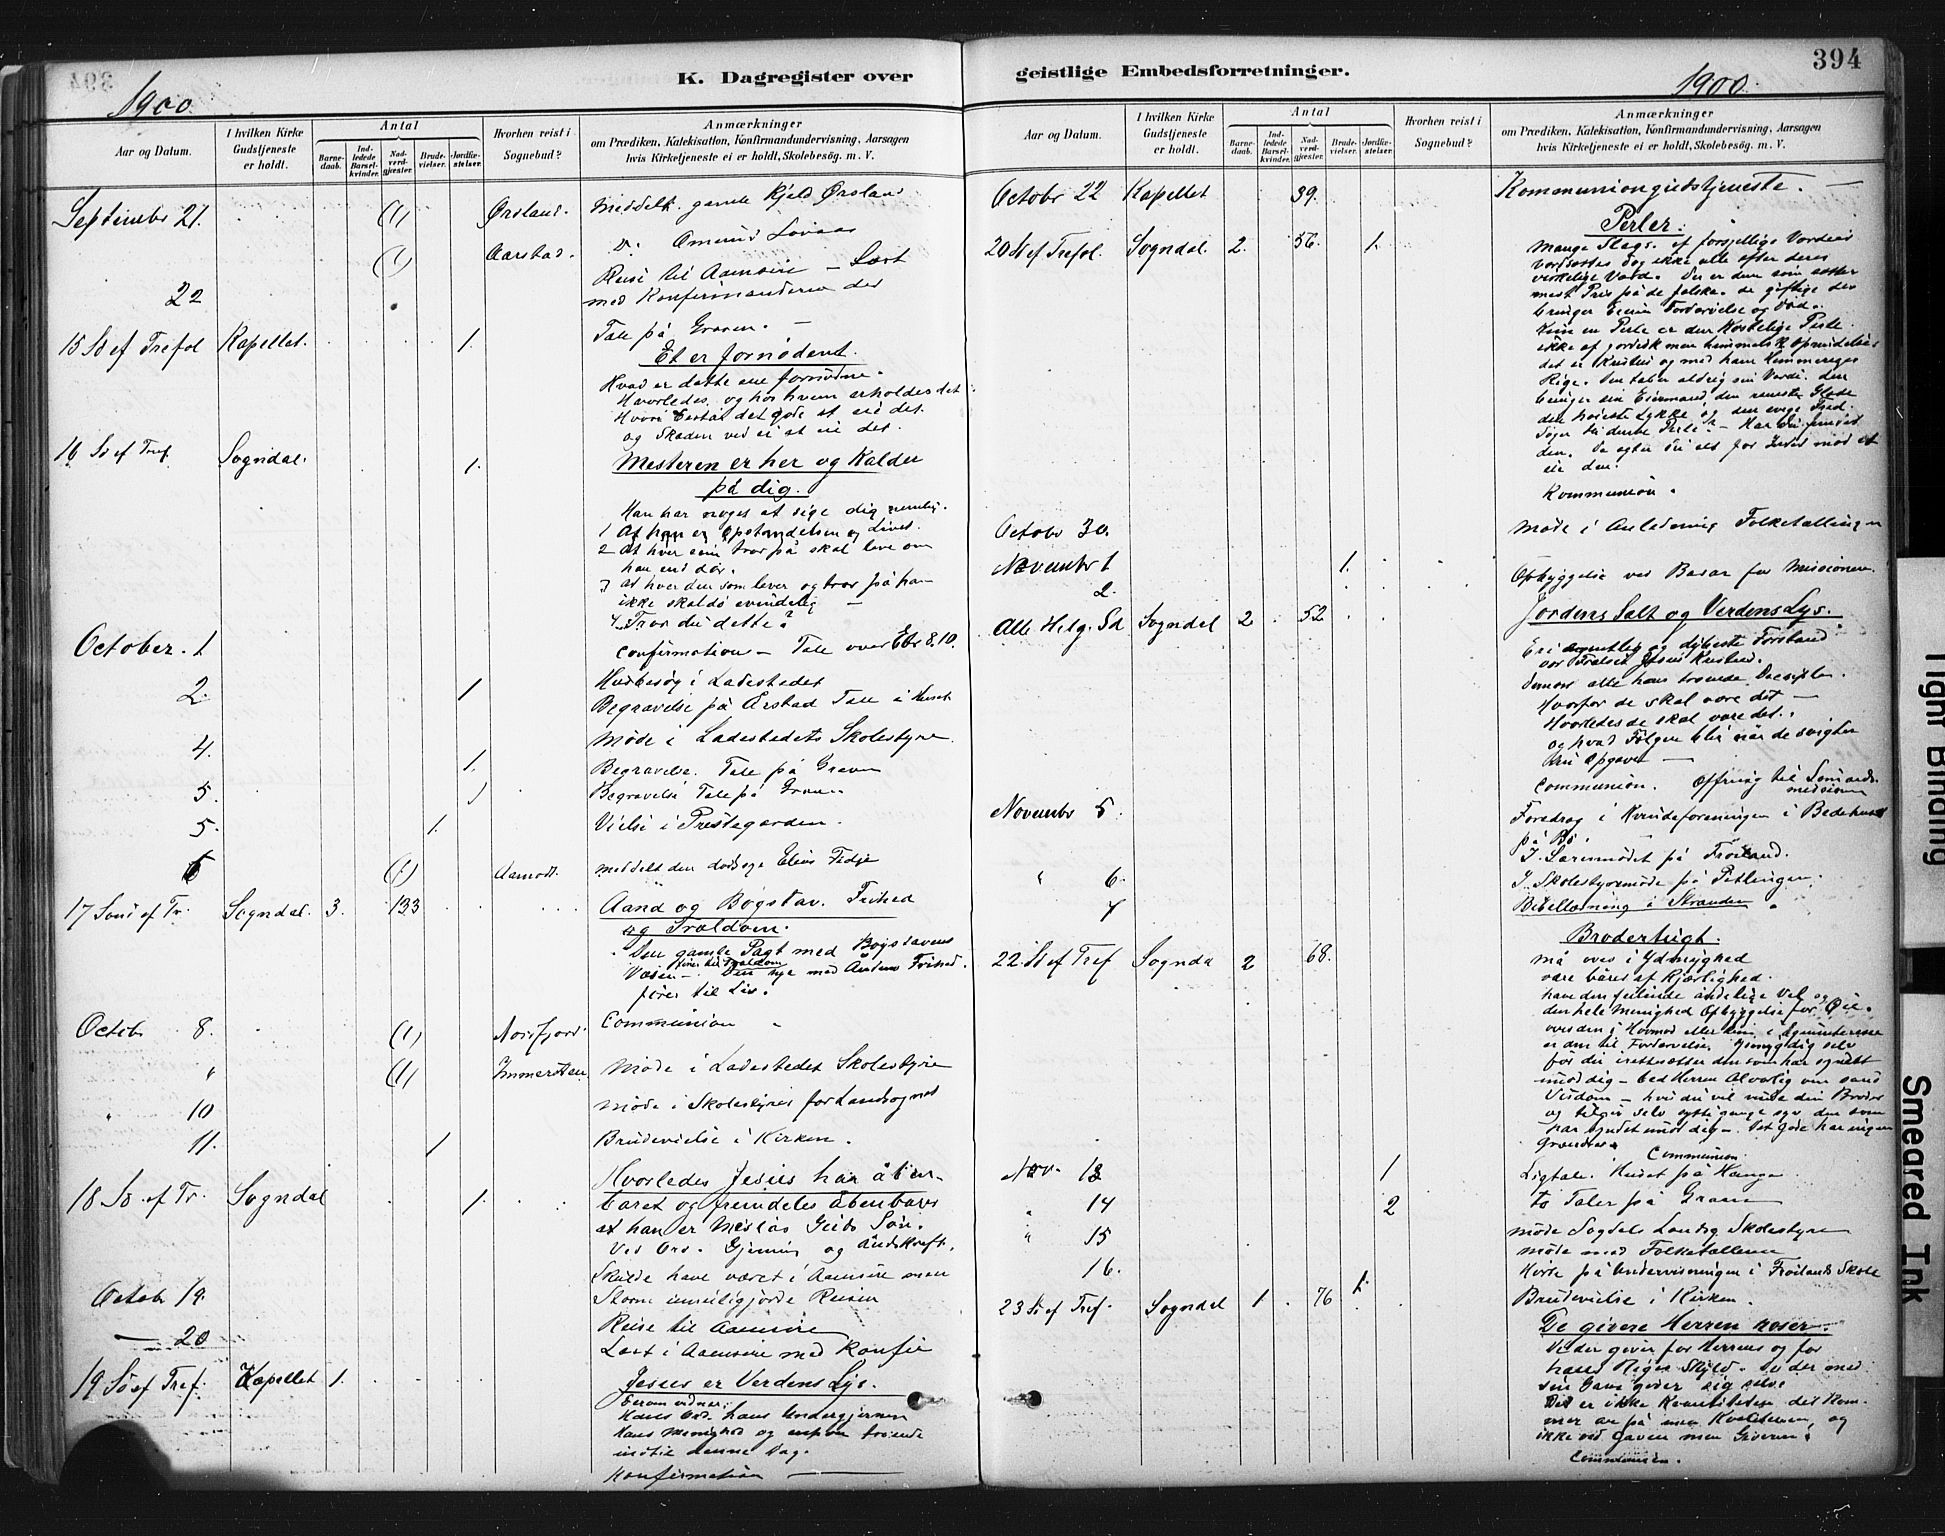 1900.
K. Dagregister over
Aar og Datum.
I hvilken Kirke Gudstjeneste er holdt.
Antal
Barnedaab.
Indledede Barselkvinder.
Nadverdgjester.
Brudevielser.
Jordfæstelser.
Hvorhen reist i Sognebud?
Anmærkninger
om Prædiken, Katekisation, Konfirmandundervisning, Aarsagen
hvis Kirketjeneste ei er holdt, Skolebesøg. m. V.
Septembr 21. (1) Ørsland. Meddelt gamle Kjeld Ørsland
(1) Aarstad. Do. Omund
22 Reise til Aamsire — Læst
med Konfirmanderne der
15 Sø ef Trefol Kapellet. 1. Tale på Graven. —
Et er fornødent.
Hvad er dette ene fornødne.
Hvorledes og hos hvem erholdes det
Hvori består det gode at eie det.
og Skaden ved ei at eie det.
16 Sø ef Tref. Sogndal. 1. Mesteren er her og Kalder
på dig.
Han har noget at sige dig nemlig.
1 At han er Opstandelsen og Livet.
2 At hver som tror på skal leve om
han end dør.
3 at hver den som lever og tror på ham
ikke skal dø evindelig —
4 Tror du dette?
October. 1 Confirmation — Tale over Ebr 8.10.
Husbesøg i Ladestedet
2. 1 Begravelse på Årstad Tale i Huset
Møde i Ladestedets Skolestyre
4. 1. Begravelse. Tale på Graven
5. Begravelse Tale på Graven
5. 1. Vielse i Prestegarden.
6 (1) Aamodt. meddelt den dødssyge Elias Fedje
17 Sønd ef Tr. Sogndal. 3. 133 Aand og Bogstav. Frihed
og Trældom.
Den gamle Pagt med Bogstavens
Væsen — fører til Trældom Den nye med Åndens Frihed.
fører til Liv.
Communion
Octob 8. (1) Nesfjord.
" (1) Immerstein Møde i Ladestedet Skolestyre
" 10 Møde i Skolestyret for Landsognet
11. 1 Brudevielse i Kirken.
18 Sø. ef Tr. Sogndal 1. Hvorledes Jesus har åben-
baret og fremdeles åbenbarer
at han er Messias Guds Søn.
Ved Ord. Gjerning og Åndskraft.
Octob 19. Skulde have været i Aamsire men
Storm umuligjorde Reisen
— 20 Reise til Aamsire
Læst i Aamsire med Konfir
19 Sø ef Tref. Kapellet 1. Jesus er Verdens Lys.
Herom vidner:
Hans Ord. hans Undergjerning
Hans Menighed og enhver troende
indtil denne Dag.
Konfirmation —
geistlige Embedsforretninger.
1900.
394
Aar og Datum.
I hvilken Kirke Gudstjeneste er holdt.
Antal
Barnedaab.
Indledede Barselkvinder.
Nadverdgjester.
Brudevielser.
Jordfæstelser.
Hvorhen reist i Sognebud?
Anmærkninger
om Prædiken, Katekisation, Konfirmandundervisning, Aarsagen
hvis Kirketjeneste ei er holdt, Skolebesøg. m. V.
Octobr 22 Kapellet 39. Kommuniongudstjeneste. —
20 Sø ef Trefol. Sogndal. 2. 56. 1. Perler.
Mange Slags. af forskjellige Værdier
værdsættes dog ikke alle efter deres
virkelige Værd. Der er dem som sætter
mest Pris på de falske. de giftige der
bringer Eieren Fordærvelse og Død.
Kun en Perle er den kostelige Perle
ikke af jordisk men himmelsk Oprindelse
det er Kristus og med ham Himmeriges
Rige. Den taber aldrig sin Værdi. Den
bringer sin Eiermand den reneste Glæde
den høieste Lykke og den evige Fred.
Søger du denne Perle? — Har du fundet
den. Da agter du alt for intet mod at
eie den.
Kommunion.
Octobr 30. Møde i Anledning Folketællingen
Novembr 1 1.
2. Opbyggelse ved Basar for Missionen.
Alle Helg. Sd Sogndal 2 52 Jordens Salt og Verdens Lys.
Er i egentlig og dybeste Forstand
vor Frelser Jesus Kristus.
Dernæst alle hans troende Disciple.
Hvorfor de skal være det —
Hvorledes de skal være det.
og hvad Følgen blir når de svigter
sin Opgave —
Communion. Offring til Sømands
missionen
Novembr 5. Foredrag i Kvindeforeningen i Bedehuset
på Bø.
" 6. I Skolestyremøde på Pitlingen.
7 Bibellæsning i Stranden
22. Sø ef Tref Sognda 2 68. Brodertugt.
må øves i Ydmyghed
være båret af Kjærlighed.
have den feilende åndelige Vel og
den hele Menighed Opbyggelse for Øie.
øves den i Hovmod eller
er den til Fordærvelse. Ydmyg dig selv
før du irettesætter den som har syndet
imod dig — bed Herren Alvorlig om sand
Visdom — hvis du vil vinde din Broder
og tilgiv selv sytti gange syv den som
har syndet imod dig —. Det Gode har ingen
Grændser.
Communion
Nov. 13 1 Ligtale. Huset på Hauge
" 14 2 to Taler på Graven
" 15 Møde Sogdals Landsg Skolestyre
møde med Folketællerne
16. Hørte på Undervisningen i Frøilands Skole
23 Sø ef Tref. Sogndal 1 76 1. Brudevielse i Kirken.
De givere Herren roser.
De der giver for Herrens og for
hans Riges Skyld. De der med
sin Gave giver sig selv.
Det er ikke Kvantiteten det kom-
mer an på men Kvaliteten, og
ikke ved Gaven men Giveren.
Communion.
Tight Binding
Smeared Ink